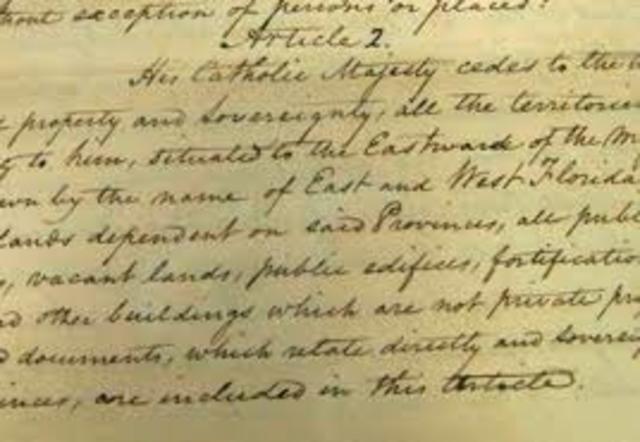 exception of persons or places.
Article 2.
His Catholic Majesty cedes to the
property and Sovereignty, all the territorie
to him, situated to the Eastward of the M
wn by the name of East and West Florida
lands dependent on said Provinces, all publ
s, vacant lands, public edifices, fortificatio
nd other buildings which are not private pr
documents, which relate directly and sovereig
inces, are included in this Article.